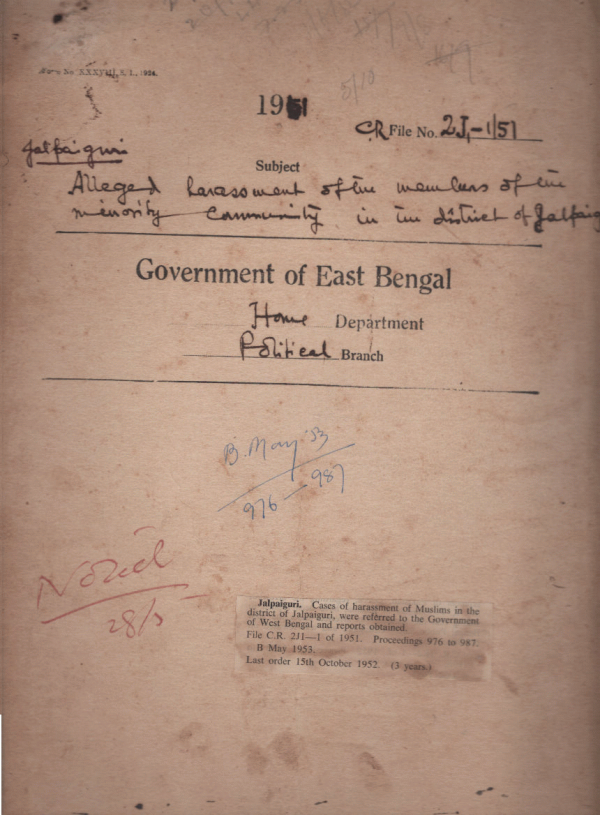 5/10
Form No. XXXVIII, S. I., 1924.
1951
CR File No. 2J,-1/51
Jalpaiguri
Subject
Alleged harassment of the members of the
minority community in the district of Jalpaig
Government of East Bengal
Home Department
Political Branch
B. May '53
976 - 987
Noted
28/5
Jalpaiguri. Cases of harassment of Muslims in the
district of Jalpaiguri, were referred to the Government
of West Bengal and reports obtained.
File C.R. 2J1—1 of 1951. Proceedings 976 to 987.
B May 1953.
Last order 15th October 1952. (3 years.)